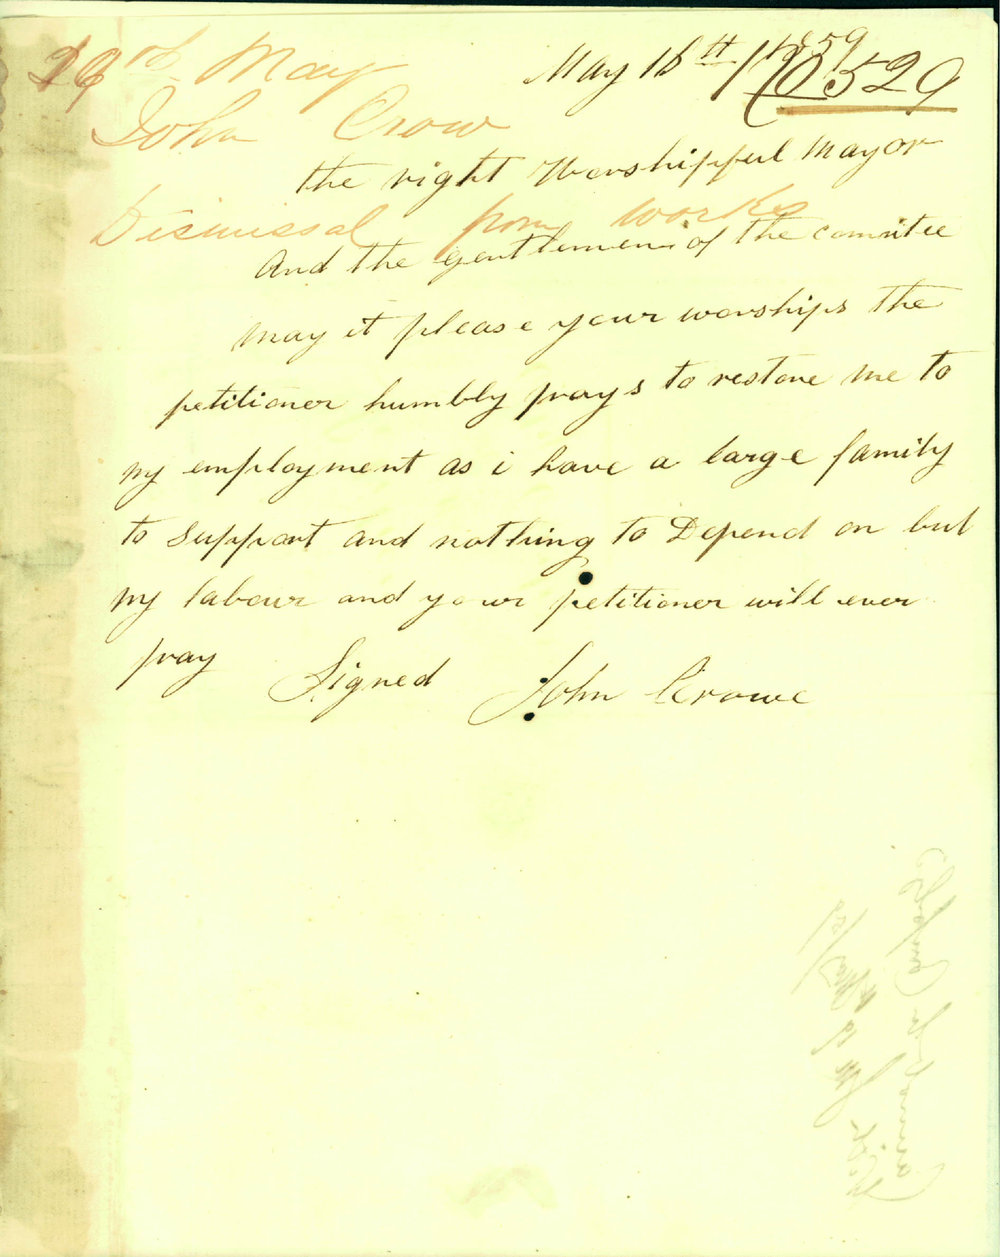 26th May
May 16th 1859
0529
John Crow
the right Worshipful Mayor
Dismissal from works
And the gentlemen of the comitee
may it please your worships the
petitioner humbly prays to restore me to
my employment as i have a large family
to support and nothing to Depend on but
my labour and your petitioner will ever
pray Signed John Crowe